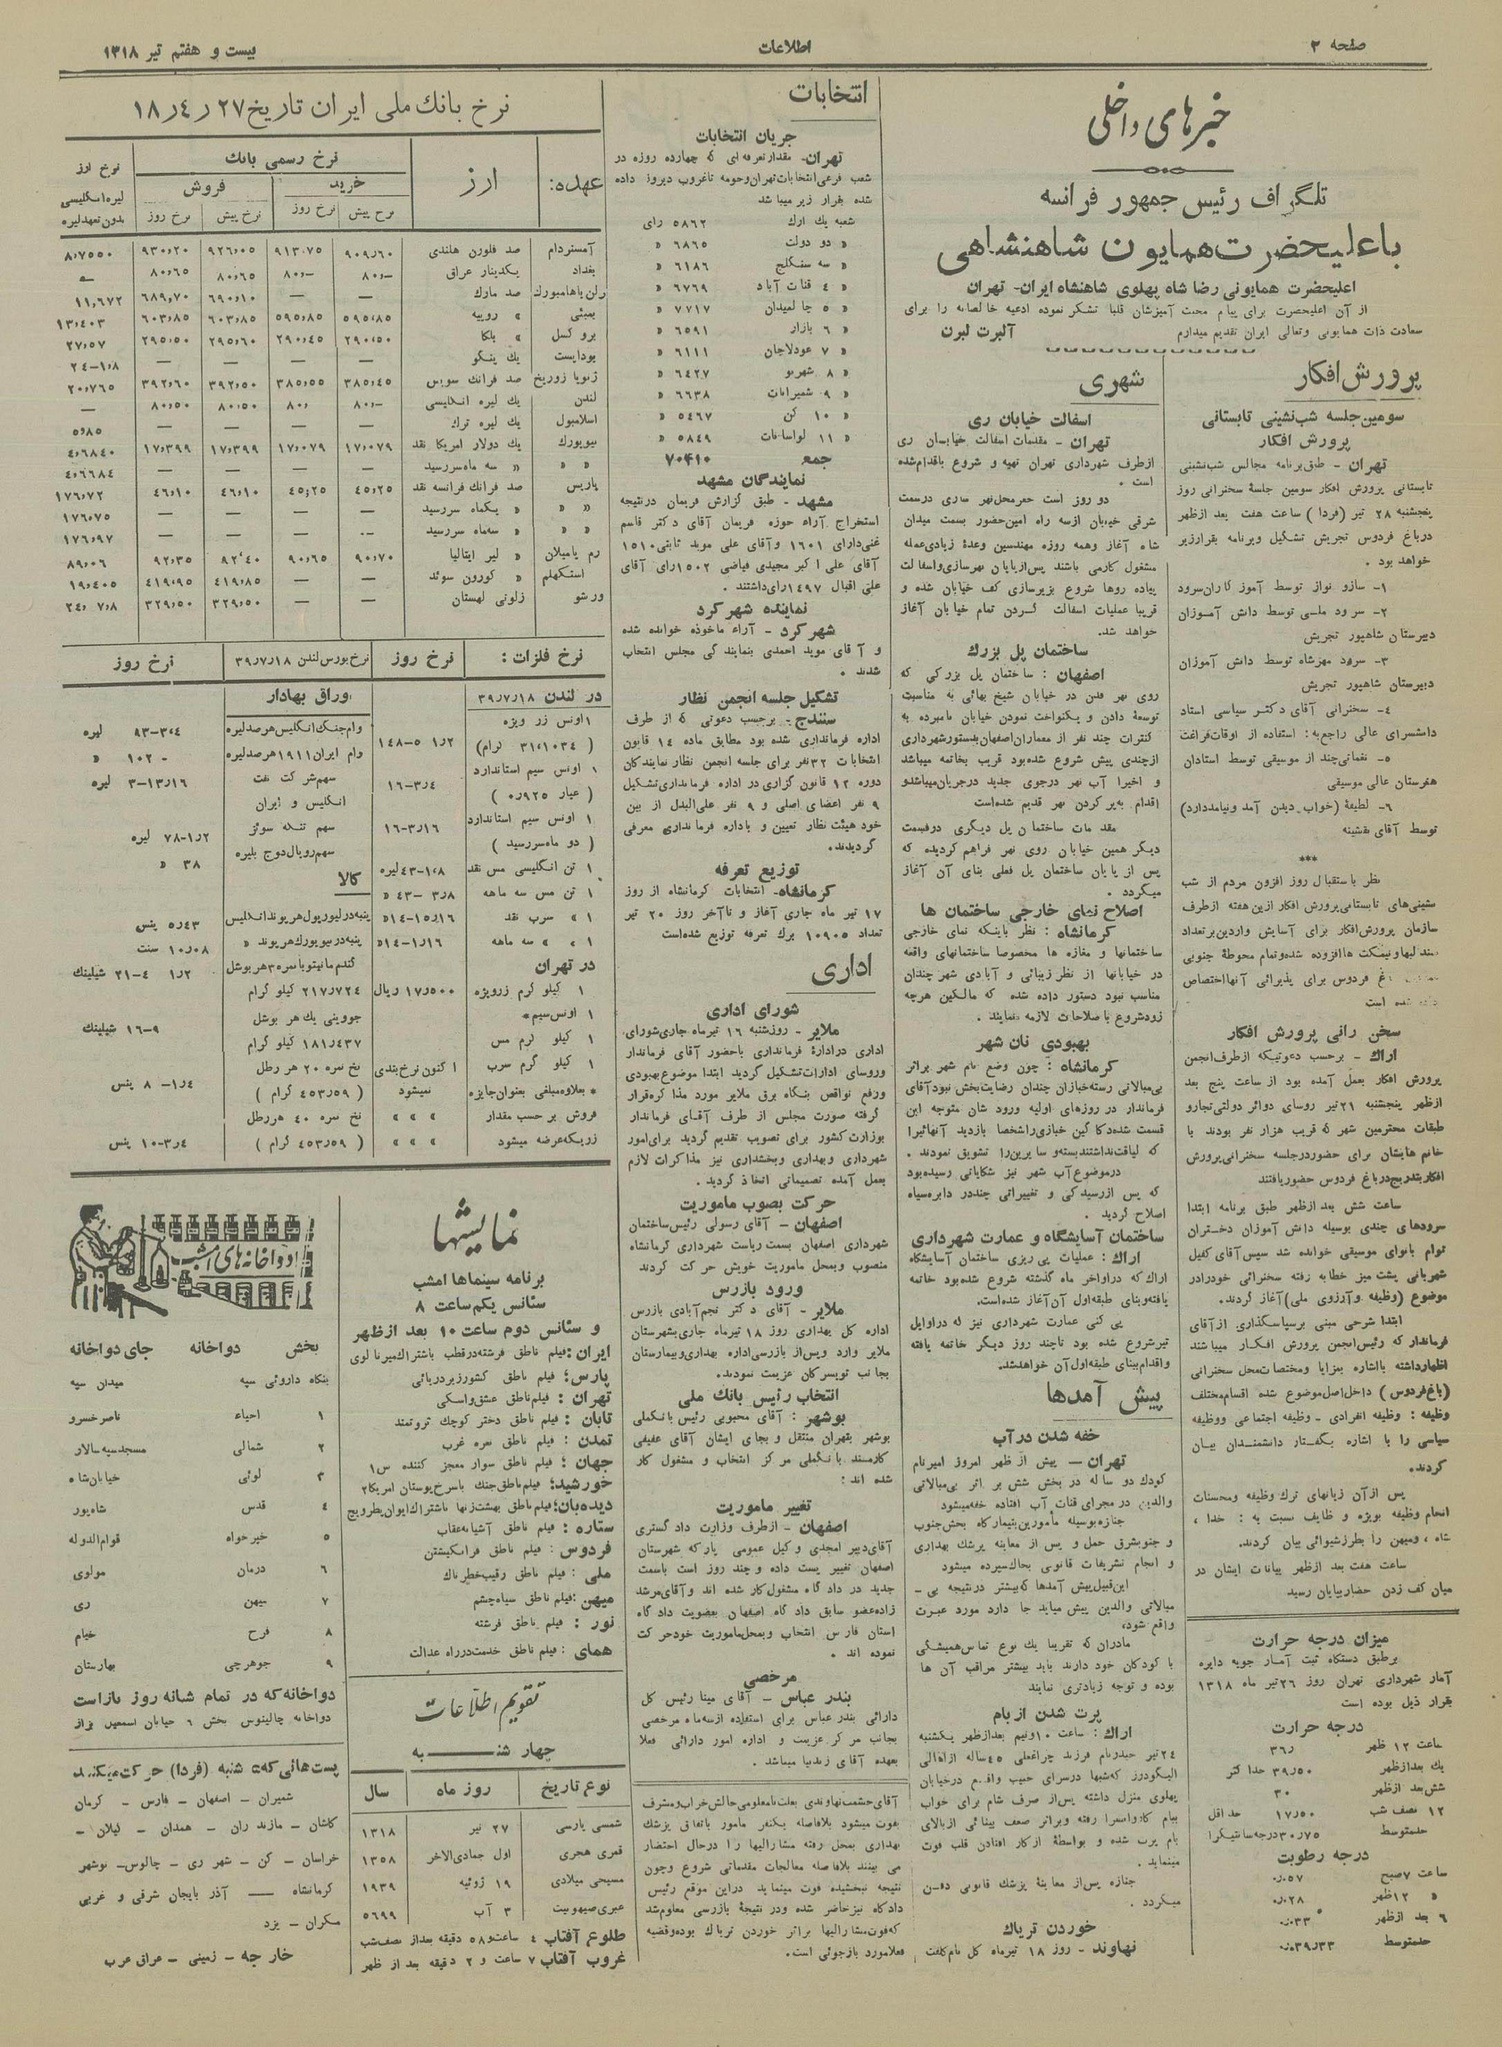 صفحه ۲
اطلاعات
بیست و هفتم تیر ۱۳۱۸
خبرهای داخلی
تلگراف رئیس جمهور فرانسه
باعلیحضرت همایون شاهنشاهی
اعلیحضرت همایونی رضا شاه پهلوی شاهنشاه ایران - تهران
از آن اعلیحضرت برای پیام محبت آمیزشان قلباً تشکر نموده ادعیه خالصانه را برای
سعادت ذات همایونی وتعالی ایران تقدیم میدارم
آلبرت لبرن
پرورش افکار
سومین جلسه شب نشینی تابستانی
پرورش افکار
تهران - طبق برنامه مجالس شب نشینی
تابستانی پرورش افکار سومین جلسهٔ سخنرانی روز
پنجشنبه ۲۸ تیر (فردا) ساعت هفت بعد ازظهر
درباغ فردوس تجریش تشکیل وبرنامه بقرارزیر
خواهد بود .
۱- سازو نواز توسط آموزگاران سرود
۲- سرود ملی توسط دانش آموزان
دبیرستان شاهپور تجریش
۳- سرود مهرشاه توسط دانش آموزان
دبیرستان شاهپور تجریش
۴- سخنرانی آقای دکتر سیاسی استاد
دانشسرای عالی راجع به: استفاده از اوقات فراغت
۵- نغماتی چند از موسیقی توسط استادان
هنرستان عالی موسیقی
۶- لطیفهٔ (خواب دیدن آمد ونیامد دارد)
توسط آقای نقشینه
***
نظر باستقبال روز افزون مردم از شب
نشینی های تابستانی پرورش افکار ازین هفته ازطرف
سازمان پرورش افکار برای آسایش واردین بر تعداد
صندلیها و نیمکت ها افزوده شده وتمام محوطهٔ جنوبی
باغ فردوس برای پذیرائی آنها اختصاص
داده شده است
سخن رانی پرورش افکار
اراک - برحسب دعوتیکه ازطرف انجمن
پرورش افکار بعمل آمده بود از ساعت پنج بعد
ازظهر پنجشنبه ۲۱ تیر روسای دوائر دولتی تجار و
طبقات محترمین شهر که قریب هزار نفر بودند با
خانم هایشان برای حضور درجلسه سخنرانی پرورش
افکار بتدریج در باغ فردوس حضور یافتند
ساعت شش بعد ازظهر طبق برنامه ابتدا
سرودهای چندی بوسیله دانش آموزان دختران
توام بانوای موسیقی خوانده شد سپس آقای کفیل
شهربانی پشت میز خطابه رفته سخنرانی خودرادر
موضوع (وظیفه وآرزوی ملی) آغاز کردند.
ابتدا شرحی مبنی برسپاسگذاری ازآقای
فرماندار که رئیس انجمن پرورش افکار میباشند
اظهار داشته با اشاره بمزایا ومختصات محل سخنرانی
(باغ فردوس) داخل اصل موضوع شده اقسام مختلف
وظیفه : وظیفه انفرادی - وظیفه اجتماعی ووظیفه
سیاسی را با اشاره بگفتار دانشمندان بیان
کردند.
پس ازآن زیانهای ترک وظیفه ومحسنات
انجام وظیفه بویژه و ظایف نسبت به : خدا ،
شاه ، ومیهن را بطرز شیوائی بیان کردند.
ساعت هفت بعد ازظهر بیانات ایشان در
میان کف زدن حضار بپایان رسید
میزان درجه حرارت
برطبق دستگاه ثبت آمار جویه دایره
آمار شهرداری تهران روز ۲۶ تیر ماه ۱۳۱۸
بقرار ذیل بوده است
درجه حرارت
ساعت ۱۲ ظهر ۳۶ر
یک بعدازظهر ۳۹٫۵۰ حداکثر
شش بعد ازظهر ۳۰
۱۲ نصف شب ۱۷٫۵۰ حداقل
حدمتوسط ۳۰٫۷۵ درجه سانتیگرا
درجه رطوبت
ساعت ۷ صبح ۰٫۵۷
« ۱۲ ظهر ۰٫۲۸
۶ بعد ازظهر ۰٫۳۳
حدمتوسط ۰٫۳۹٫۳۳
شهری
اسفالت خیابان ری
تهران - مقدمات اسفالت خیابان ری
ازطرف شهرداری تهران تهیه و شروع باقدام شده
است .
دو روز است حفر محل نهر سازی درسمت
شرقی خیابان ازسه راه امین حضور بسمت میدان
شاه آغاز وهمه روزه مهندسین وعدهٔ زیادی عمله
مشغول کار می باشند پس از پایان نهر سازی واسفالت
پیاده روها شروع بزیرسازی کف خیابان شده و
قریبا عملیات اسفالت کردن تمام خیابان آغاز
خواهد شد.
ساختمان پل بزرگ
اصفهان : ساختمان پل بزرگی که
روی نهر فدن در خیابان شیخ بهائی به مناسبت
توسعهٔ دادن و یکنواخت نمودن خیابان نامبرده به
کنترات چند نفر از معماران اصفهان بدستور شهرداری
ازچندی پیش شروع شده بود قریب بخاتمه میباشد
و اخیرا آب نهر درجوی جدید درجریان میباشد و
اقدام به پر کردن نهر قدیم شده است
مقدمات ساختمان پل دیگری درقسمت
دیگر همین خیابان روی نهر فراهم گردیده که
پس از پایان ساختمان پل فعلی بنای آن آغاز
میگردد .
اصلاح نمای خارجی ساختمان ها
کرمانشاه : نظر باینکه نمای خارجی
ساختمانها و مغازه ها مخصوصا ساختمانهای واقعه
در خیابانها از نظر زیبائی و آبادی شهر چندان
مناسب نبود دستور داده شده که مالکین هرچه
زودشروع باصلاحات لازمه نمایند .
بهبودی نان شهر
کرمانشاه : چون وضع نان شهر براثر
بی مبالاتی رسته خبازان چندان رضایت بخش نبود آقای
فرماندار در روزهای اولیه ورود شان متوجه این
قسمت شده دکاکین خبازی را شخصا بازدید آنهائیرا
که لیاقت نداشتند بسته و سایرین را تشویق نمودند .
درموضوع آب شهر نیز شکایاتی رسیده بود
که پس ازرسیدگی و تغییراتی چند در دایره سپاه
اصلاح گردید .
ساختمان آسایشگاه و عمارت شهرداری
اراک : عملیات پی ریزی ساختمان آسایشگاه
اراک که در اواخر ماه گذشته شروع شده بود خاتمه
یافته و بنای طبقه اول آن آغاز شده است.
پی کنی عمارت شهرداری نیز که دراوایل
تیر شروع شده بود تاچند روز دیگر خاتمه یافته
واقدام ببنای طبقه اول آن خواهد شد.
پیش آمدها
خفه شدن درآب
تهران - پیش از ظهر امروز امیر نام
کودک دو ساله در بخش شش بر اثر بی مبالاتی
والدین در مجرای قنات آب افتاده خفه میشود
جنازه بوسیله مأمورین بتیمارگاه بخش جنوب
و جنوبشرق حمل و پس از معاینه پزشک بهداری
و انجام تشریفات قانونی بخاک سپرده میشود
این قبیل پیش آمدها که بیشتر درنتیجه بی -
مبالاتی والدین پیش میاید جا دارد مورد عبرت
واقع شود،
مادران که تقریبا یک نوع تماس همیشگی
با کودکان خود دارند باید بیشتر مراقب آن ها
بوده و توجه زیادتری نمایند
پرت شدن ازبام
اراک : ساعت ۱۰ونیم بعدازظهر یکشنبه
۲۴ تیر حیدر نام فرزند چراغعلی ۴۵ ساله ازاهالی
الیگودرز که شبها درسرای حبیب واقع درخیابان
پهلوی منزل داشته پس از صرف شام برای خواب
ببام کاروانسرا رفته وبراثر ضعف بینائی ازبالای
بام پرت شده و بواسطهٔ ازکار افتادن قلب فوت
مینماید .
جنازه پس از معاینهٔ پزشک قانونی دفن
میگردد .
خوردن تریاک
نهاوند - روز ۱۸ تیرماه کل نام کلفت
انتخابات
جریان انتخابات
تهران- مقدار تعرفه ای که چهارده روزه در
شعب فرعی انتخابات تهران وحومه تاغروب دیروز داده
شده بقرار زیر میباشد
شعبه یک ارک ۵۸۶۲ رای
« دو دولت ۶۸۶۵ «
« سه سنگلج ۶۱۸۶ «
« ۴ قنات آباد ۶۷۶۹ «
« ۵ چالمیدان ۷۷۱۷ «
« ۶ بازار ۶۵۹۱ «
« ۷ عودلاجان ۶۱۱۱ «
« ۸ شهرنو ۶۴۲۷ «
« ۹ شمیرانات ۶۶۳۸ «
« ۱۰ کن ۵۴۶۷ «
« ۱۱ لواسانات ۵۸۴۹ «
جمع ۷۰۴۱۰
نمایندگان مشهد
مشهد - طبق گزارش فریمان درنتیجه
استخراج آراء حوزه فریمان آقای دکتر قاسم
غنی دارای ۱۶۰۱ وآقای علی موید ثابتی ۱۵۱۰
آقای علی اکبر مجیدی فیاضی ۱۵۰۲ رای آقای
علی اقبال ۱۴۹۷ رای داشتند .
نماینده شهر کرد
شهر کرد - آراء ماخوذه خوانده شده
و آقای موید احمدی بنمایندگی مجلس انتخاب
شدند .
تشکیل جلسه انجمن نظار
سنندج - برحسب دعوتی که از طرف
اداره فرمانداری شده بود مطابق ماده ۱۴ قانون
انتخابات ۳۲نفر برای جلسه انجمن نظار نمایندگان
دوره ۱۲ قانون گزاری در اداره فرمانداری تشکیل
۹ نفر اعضای اصلی و ۹ نفر علی البدل از بین
خود هیئت نظار تعیین و باداره فرمانداری معرفی
گردیدند.
توزیع تعرفه
کرمانشاه- انتخابات کرمانشاه از روز
۱۷ تیر ماه جاری آغاز و تاآخر روز ۲۰ تیر
تعداد ۱۰۹۰۵ برک تعرفه توزیع شده است
اداری
شورای اداری
ملایر - روزشنبه ۱۶ تیرماه جاری شورای
اداری درادارهٔ فرمانداری باحضور آقای فرماندار
وروسای ادارات تشکیل گردید ابتدا موضوع بهبودی
ورفع نواقص بنگاه برق ملایر مورد مذاکره قرار
گرفته صورت مجلس از طرف آقای فرماندار
بوزارت کشور برای تصویب تقدیم گردید برای امور
شهرداری وبهداری وبخشداری نیز مذاکرات لازم
بعمل آمده تصمیماتی اتخاذ گردید.
حرکت بصوب ماموریت
اصفهان - آقای رسولی رئیس ساختمان
شهرداری اصفهان بسمت ریاست شهرداری کرمانشاه
منصوب وبمحل ماموریت خویش حرکت کردند
ورود بازرس
ملایر - آقای دکتر نجم آبادی بازرس
اداره کل بهداری روز ۱۸ تیرماه جاری بشهرستان
ملایر وارد وپس از بازرسی اداره بهداری وبیمارستان
بجانب تویسرکان عزیمت نمودند.
انتخاب رئیس بانک ملی
بوشهر : آقای محبوبی رئیس بانک ملی
بوشهر بتهران منتقل و بجای ایشان آقای عفیفی
کارمند بانک ملی مرکز انتخاب و مشغول کار
شده اند :
تغییر ماموریت
اصفهان - ازطرف وزارت دادگستری
آقای دبیر امجدی وکیل عمومی پارکه شهرستان
اصفهان تغییر پست داده و چند روز است باسمت
جدید در دادگاه مشغول کار شده اند و آقای مرشد
زاده عضو سابق دادگاه اصفهان بعضویت دادگاه
استان فارس انتخاب وبمحل ماموریت خود حرکت
نموده اند .
مرخصی
بندر عباس - آقای مینا رئیس کل
دارائی بندر عباس برای استفاده ازسه ماه مرخصی
بجانب مرکز عزیمت و اداره امور دارائی فعلا
بعهده آقای زندنیا میباشد.
آقای حشمت نهاوندی بعلت نامعلومی حالش خراب و مشرف
بفوت میشود بلافاصله یکنفر مامور باتفاق پزشک
بهداری بمحل رفته مشارالیها را درحال احتضار
می بینند بلافاصله معالجات مقدماتی شروع وچون
نتیجه نبخشیده فوت مینماید دراین موقع رئیس
دادگاه نیز حاضر شده ودر نتیجهٔ بازرسی معلوم شد
که فوت مشارالیها براثر خوردن تریاک بوده وقضیه
فعلا مورد بازجوئی است .
نرخ بانک ملی ایران تاریخ ۲۷ر۴ر۱۸
عهده: ارز نرخ رسمی بانک نرخ ارز
خرید فروش لیره انگلیسی
نرخ پیش نرخ روز نرخ پیش نرخ روز بدون تعهد لیره
آمستردام صد فلورن هلندی ۹۰۹٫۶۰ ۹۱۳٫۷۵ ۹۲۶٫۰۵ ۹۳۰٫۲۰ ۸٫۷۵۵۰
بغداد یکدینار عراق ۸۰٫- ۸۰٫- ۸۰٫۶۵ ۸۰٫۶۵
برلن یاهامبورک صد مارک — — ۶۹۰٫۱۰ ۶۸۹٫۷۰ ۱۱٫۶۷۲
بمبئی « روپیه ۵۹۵٫۸۵ ۵۹۵٫۸۵ ۶۰۳٫۸۵ ۶۰۳٫۸۵ ۱۳٫۴۰۳
بروکسل « بلکا ۲۹۰٫۵۰ ۲۹۰٫۴۵ ۲۹۵٫۶۰ ۲۹۵٫۵۰ ۲۷٫۵۷
بوداپست یک پنگو — — — — ۲۴-۱٫۸
ژنویا زوریخ صد فرانک سویس ۳۸۵٫۴۵ ۳۸۵٫۵۵ ۳۹۲٫۵۰ ۳۹۲٫۶۰ ۲۰٫۷۶۵
لندن یک لیره انگلیسی ۸۰٫- ۸۰٫ ۸۰٫۵۰ ۸۰٫۵۰ —
اسلامبول یک لیره ترک — — — — ۵٫۸۵
نیویورک یک دولار امریکا نقد ۱۷٫۰۷۹ ۱۷٫۰۷۹ ۱۷٫۳۹۹ ۱۷٫۳۹۹ ۴٫۶۸۴۰
« « « سه ماه سررسید — — — — ۴٫۶۶۸۴
پاریس صد فرانک فرانسه نقد ۴۵٫۲۵ ۴۵٫۲۵ ۴۶٫۱۰ ۴۶٫۱۰ ۱۷۶٫۷۲
« « « یکماه سررسید — — — — ۱۷۶٫۷۵
« « « سه ماه سررسید — — — — ۱۷۶٫۹۷
رم یا میلان « لیر ایتالیا ۹۰٫۷۰ ۹۰٫۶۵ ۹۲٫۴۰ ۹۲٫۳۵ ۸۹٫۰۶
استکهلم « کورون سوئد — — ۴۱۹٫۸۵ ۴۱۹٫۹۵ ۱۹٫۴۰۵
ورشو زلوتی لهستان — — ۳۲۹٫۵۰ ۳۲۹٫۵۰ ۲۴٫۷٫۸
نرخ فلزات : نرخ روز
در لندن ۳۹٫۷٫۱۸
۱ اونس زر ویژه ۱٫۲ ۵-۱۴۸
( ۳۱٫۱۰۳۴ گرام)
۱ اونس سیم استاندارد ۳٫۴-۱۶
( عیار ۰٫۹۲۵ )
۱ اونس سیم استاندارد ۳٫۱۶-۱۶
( دو ماه سررسید )
۱ تن انگلیسی مس نقد ۱٫۸-۴۳ لیره
۱ تن مس سه ماهه ۳٫۸-۴۳ «
۱ « سرب نقد ۱۵٫۱۶-۱۴ «
۱ « « سه ماهه ۱٫۱۶-۱۴ «
در تهران
۱ کیلو گرم زرویژه ۱۷٫۵۰۰ ریال
۱ اونس سیم*
۱ کیلو گرم مس
۱ کیلو گرم سرب اکنون نرخ بندی
* بعلاوه مبلغی بعنوان جایزه نمیشود
فروش بر حسب مقدار « « «
زریکه عرضه میشود « « «
نرخ بورس لندن ۳۹٫۷٫۱۸ نرخ روز
اوراق بهادار
وام جنک انگلیس هرصدلیره ۳٫۴-۹۳ لیره
وام ایران ۱۹۱۱ هرصد لیره -۱۰۲ «
سهم شرکت نفت ۱۳٫۱۶-۳ لیره
انگلیس و ایران
سهم تنگه سوئز ۱٫۲-۷۸ لیره
سهم رویال دوج بلیره ۳۸ «
کالا
پنبه در لیورپول هر پوند انگلیس ۵٫۴۳ پنس
پنبه در نیویورک هر پوند « ۱۰٫۰۸ سنت
گندم مانیتوبا نمره ۳ هر بوشل ۱٫۲ ۴-۲۱ شیلینک
۲۱۷٫۷۲۴ کیلو گرام
جووینی پک هر بوشل ۹-۱۶ شیلینک
۱۸۱٫۴۳۷ کیلو گرام
نخ نمره ۲۰ هر رطل ۱٫۴- ۸ پنس
( ۴۵۳٫۵۹ گرام )
نخ نمره ۴۰ هر رطل
( ۴۵۳٫۵۹ گرام ) ۳٫۴-۱۰ پنس
نمایشها
برنامه سینماها امشب
سئانس یکم ساعت ۸
و سئانس دوم ساعت ۱۰ بعد ازظهر
ایران: فیلم ناطق فرشته درقطب باشتراک میرنا لوی
پارس: فیلم ناطق کشور زیر دریائی
تهران : فیلم ناطق عشق واسکی
تابان : فیلم ناطق دختر کوچک ثروتمند
تمدن : فیلم ناطق نمره غرب
جهان : فیلم ناطق سوار معجز کننده س ۱
خورشید: فیلم ناطق جنک باسرخ پوستان امریکا ۲
دیده بان: فیلم ناطق بهشت زنها باشتراک ایوان پطرویچ
ستاره : فیلم ناطق آشیانه عقاب
فردوس : فیلم ناطق فرانکیشتن
ملی : فیلم ناطق رقیب خطرناک
میهن: فیلم ناطق سیاه چشم
نور : فیلم ناطق فرشته
همای : فیلم ناطق خدمت درراه عدالت
تقویم اطلاعات
چهارشنبه
نوع تاریخ روز ماه سال
شمسی پارسی ۲۷ تیر ۱۳۱۸
قمری هجری اول جمادی الاخر ۱۳۵۸
مسیحی میلادی ۱۹ ژوئیه ۱۹۳۹
عبری صیهونیت ۳ آب ۵۶۹۹
طلوع آفتاب ۴ ساعت و۵۸ دقیقه بعداز نصف شب
غروب آفتاب ۷ ساعت و ۲ دقیقه بعد از ظهر
دواخانه های امشب
بخش دواخانه جای دواخانه
بنگاه داروئی سپه میدان سپه
۱ احیاء ناصرخسرو
۲ شمالی مسجد سپه سالار
۳ لوئی خیابان شاه
۴ قدس شاهپور
۵ خیرخواه قوام الدوله
۶ درمان مولوی
۷ میهن ری
۸ فرح خیام
۹ جوهرچی بهارستان
دواخانه که در تمام شبانه روز بازاست
دواخانه چالینوس بخش ۶ خیابان اسمعیل بزاز
پست هائی که ۵ شنبه (فردا) حرکت میکنند
شمیران - اصفهان - فارس - کرمان
کاشان - مازندران - همدان - گیلان -
خراسان - کن - شهر ری - چالوس- نوشهر
کرمانشاه — آذربایجان شرقی و غربی
مکران - یزد
خارجه - زمینی - عراق عرب